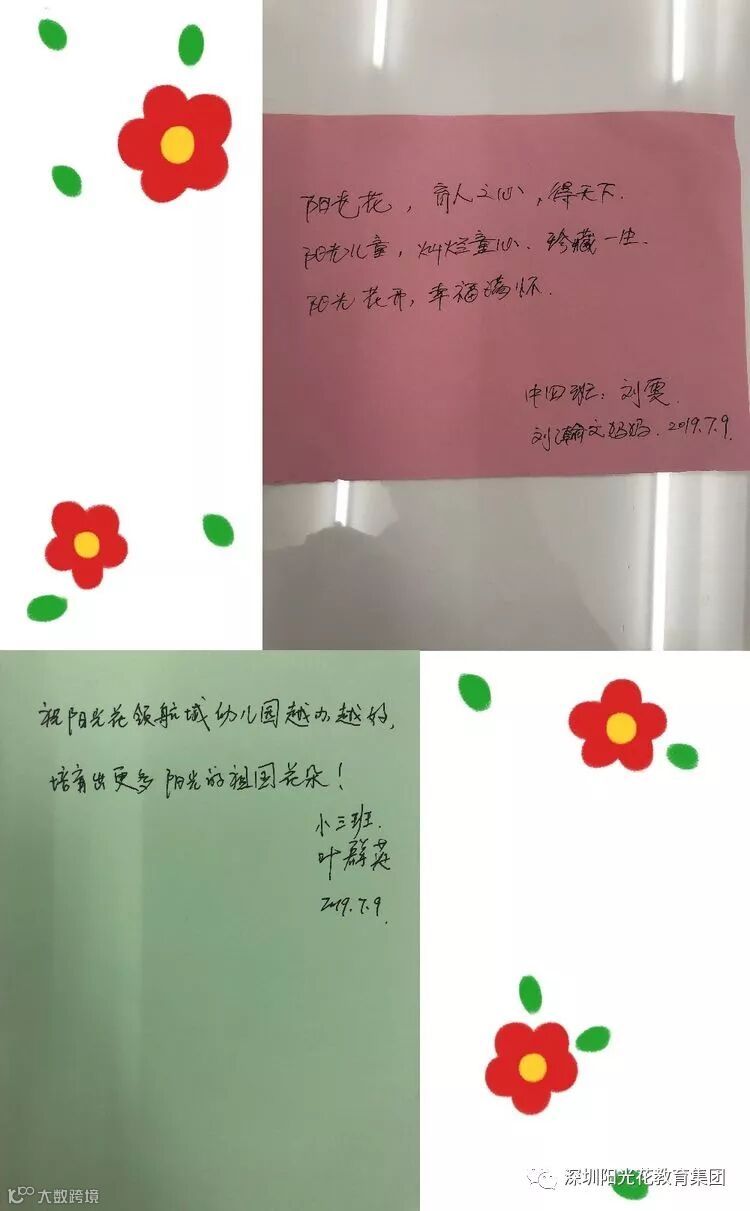 阳光花，育人之心，得天下.
阳光儿童，灿烂童心.珍藏一生.
阳光花开，幸福满怀.
中四班：刘雯.
刘瀚文妈妈.2019.7.9.
祝阳光花领航城幼儿园越办越好，
培育出更多阳光的祖国花朵！
小三班.
叶群英
2019.7.9.
大数跨境
深圳阳光花教育集团